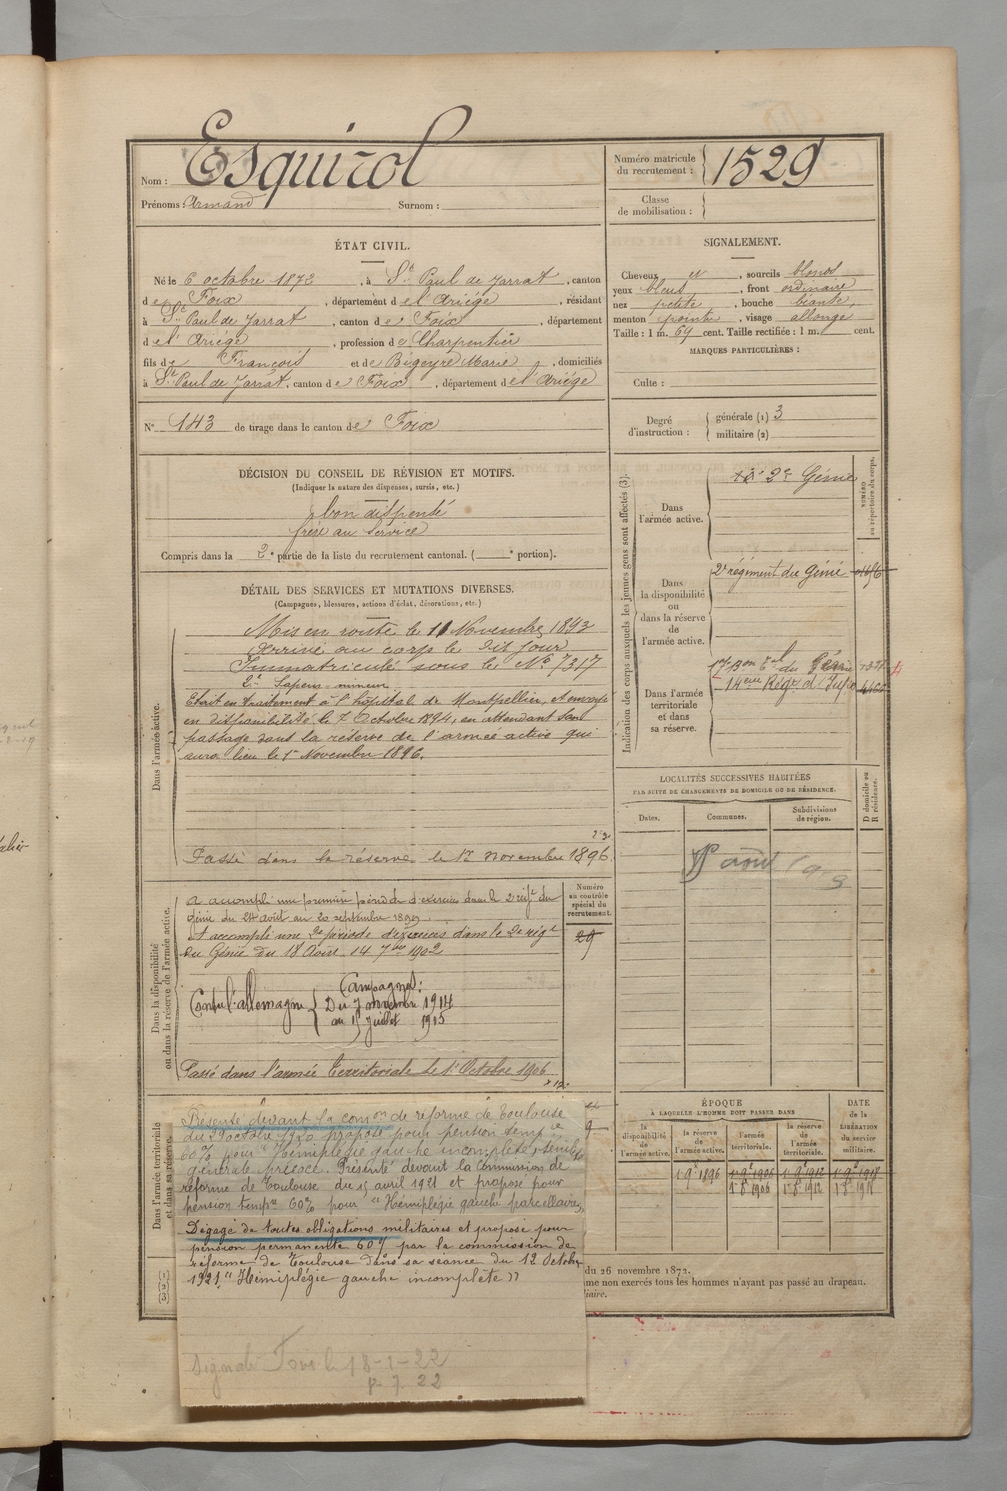 Nom : Esquirol
Prénoms : Armand Surnom :
Numéro matricule
du recrutement : 1529
Classe
de mobilisation :
ÉTAT CIVIL.
Né le 6 octobre 1872, à St Paul de Jarrat, canton
de Foix, département de l'Ariège, résidant
à St Paul de Jarrat, canton de Foix, département
de l'Ariége, profession de Charpentier
fils de François et de Bigeyre Marie, domiciliés
à St Paul de Jarrat, canton de Foix, département de l'Ariége
N° 143 de tirage dans le canton de Foix
SIGNALEMENT.
Cheveux et, sourcils blonds
yeux bleus, front ordinaire
nez petite, bouche béante,
menton pointe, visage allonge
Taille : 1 m. 69 cent. Taille rectifiée : 1 m. cent.
MARQUES PARTICULIÈRES :
Culte :
Degré
d'instruction :
générale (1) 3
militaire (2)
DÉCISION DU CONSEIL DE RÉVISION ET MOTIFS.
(Indiquer la nature des dispenses, sursis, etc.)
bon dispensé
frère au service
Compris dans la 2e partie de la liste du recrutement cantonal. ( e portion).
DÉTAIL DES SERVICES ET MUTATIONS DIVERSES.
(Campagnes, blessures, actions d'éclat, décorations, etc.)
Dans l'armée active.
Mis en route le 11 Novembre 1893
Arrivé au corps le dit jour
Immatriculé sous le No 7317
2e Sapeur-mineur
Etait en traitement à l'hôpital de Montpellier,
en disponibilité le 7 Octobre 1894, en attendant son
passage dans la réserve de l'armée active qui
aura lieu le 1er Novembre 1896.
Passé dans la réserve le 1er novembre 1896
Indication des corps auxquels les jeunes gens sont affectés (3).
NUMÉRO
au répertoire du corps.
Dans
l'armée active.
2e Génie
Dans
la disponibilité
ou
dans la réserve de
l'armée active.
2e régiment du Génie
Dans l'armée
territoriale
et dans
sa réserve.
17 Bon Tal du Génie
14eme Régt d'Infie
LOCALITÉS SUCCESSIVES HABITÉES
PAR SUITE DE CHANGEMENTS DE DOMICILE OU DE RÉSIDENCE.
Dates.
Communes.
Subdivisions
de région.
D domicile ou
R résidence.
Dans la disponibilité
ou dans la réserve de l'armée active.
Numéro
au contrôle
spécial du
recrutement.
29
A accompli une première période d'exercices dans le 2e régt du
Génie du 24 août au 20 septembre 1899
A accompli une 2e période d'exercices dans le 2e régt
du Génie du 18 Août 14 7bre 1902
Campagnes :
Contre l'allemagne
Du 7 novembre 1914
au 15 Juillet 1915
Passé dans l'armée Territoriale le 1er Octobre 1906
Dans l'armée territoriale
et dans sa réserve.
Présenté devant la comon de réforme de Toulouse
du octobre 1920 proposé pour pension tempre
60% pour "Hémiplégie gauche incomplète,
générale précoce. Présenté devant la commission de
réforme de Toulouse du 15 avril 1921 et proposé pour
pension tempre 60% pour "Hémiplégie gauche parcellaire,
Dégagé de toutes obligations militaires et proposé pour
pension permanente 60% par la commission de
réforme de Toulouse dans sa séance du 12 Octobre
1921 "Hémiplégie gauche incomplète"
Signalé Foix le 18-1-22
p. 7. 22
ÉPOQUE
À LAQUELLE L'HOMME DOIT PASSER DANS
la
disponibilité
de
l'armée active.
la réserve
de
l'armée active.
l'armée
territoriale.
la réserve
de
l'armée
territoriale.
DATE
de la
LIBÉRATION
du service
militaire.
1 9e 1896 1 9e 1906 1 9e 1912 1 9e 1918
1 8 1906 1 8 1912 1 8 1918
du 26 novembre 1872.
me non exercés tous les hommes n'ayant pas passé au drapeau.